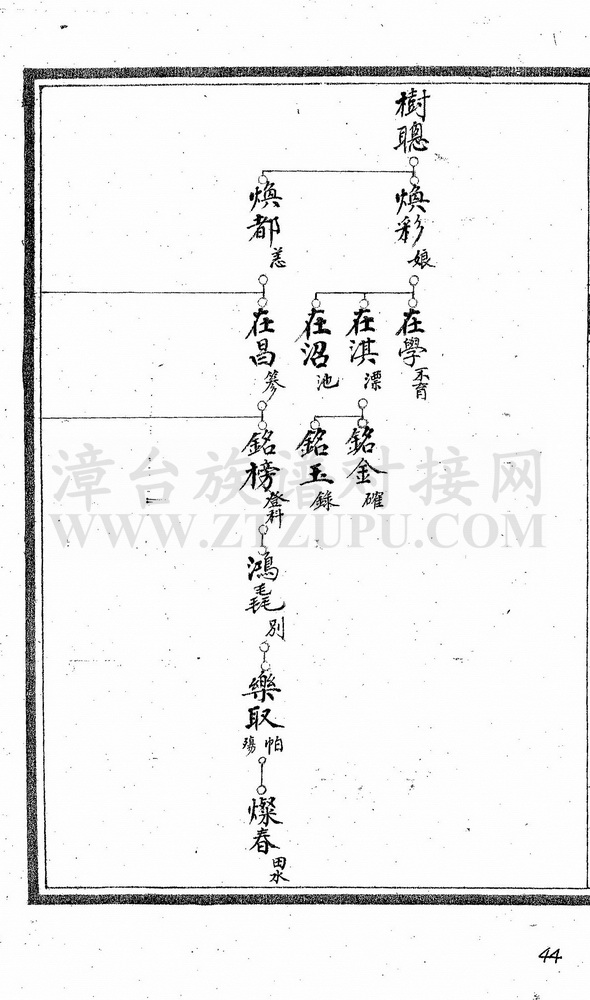 樹聰
煥彩 娘
煥都 恙
在學 不育
在淇 漂
在沼 池
在昌 篸
銘金 確
銘玉 錄
銘榜 登科
鴻毳 別
樂取 帕 殤
燦春 田水
漳台族谱对接网
WWW.ZTZUPU.COM
44